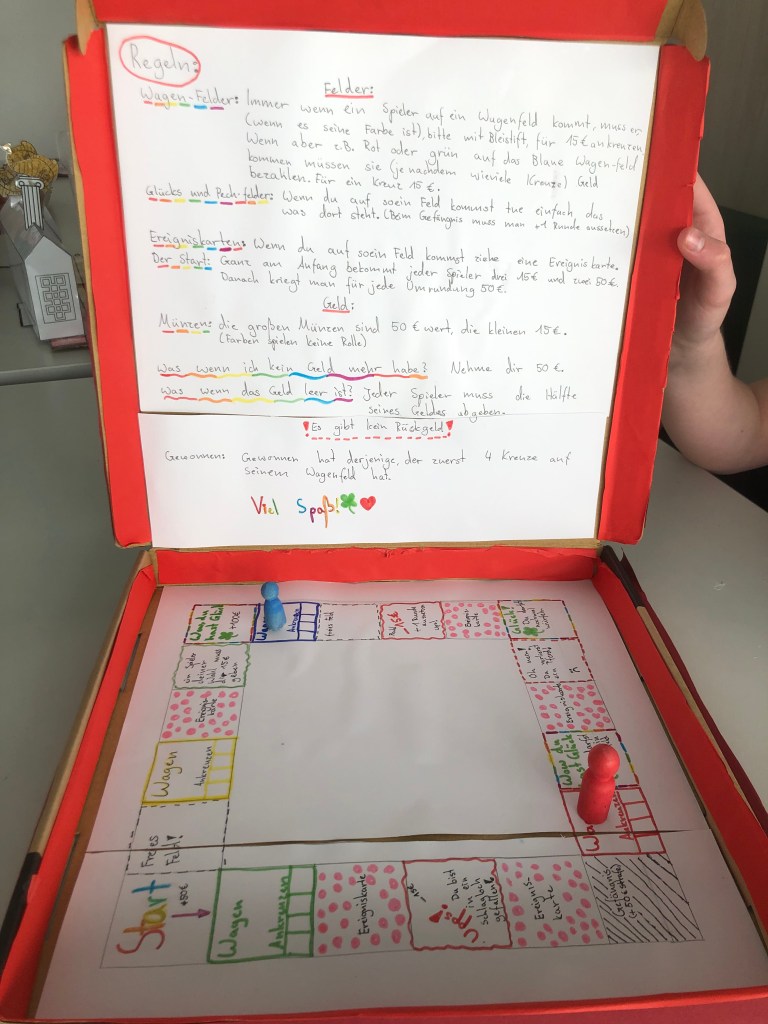 Regeln:
Felder:
Wagen-Felder: Immer wenn ein Spieler auf ein Wagenfeld kommt, muss er,
(wenn es seine Farbe ist), bitte mit Bleistift, für 15 € ankreuzen
Wenn aber z.B. Rot oder grün auf das Blaue Wagen-feld
kommen müssen sie (je nachdem wieviele Kreuze) Geld
bezahlen. Für ein Kreuz 15 €.
Glücks und Pech-felder: Wenn du auf soein Feld kommst tue einfach, das
was dort steht. (Beim Gefängnis muss man +1 Runde aussetzen)
Ereigniskarten: Wenn du auf soein Feld kommst ziehe eine Ereigniskarte.
Der Start: Ganz am Anfang bekommt jeder Spieler drei 15€ und zwei 50€.
Danach kriegt man für jede Umrundung 50€.
Geld:
Münzen: die großen Münzen sind 50 € wert, die kleinen 15€.
(Farben spielen keine Rolle)
Was wenn ich kein Geld mehr habe? Nehme dir 50 €.
Was wenn das Geld leer ist? Jeder Spieler muss die Hälfte
seines Geldes abgeben.
!Es gibt kein Rückgeld!
Gewonnen: Gewonnen hat derjenige, der zuerst 4 Kreuze auf
seinem Wagenfeld hat.
Viel Spaß!
Wow du
hast Glück
+100€
freies Feld
+1 Runde
aussetzen
Glück!
Du
ein Spieler
deiner
Wahl muss
dir 15€
geben
Oh nein!
Ereigniskarte
Wagen
Ankreuzen
Wow du
hast Glück
Ankreuzen
Freies
Feld!
Start
↓+50€
Wagen
Ankreuzen
Ereigniskarte
-15€
Du bist
in ein
Schlagloch
gefallen!
Ereignis-
karte
Gefängnis